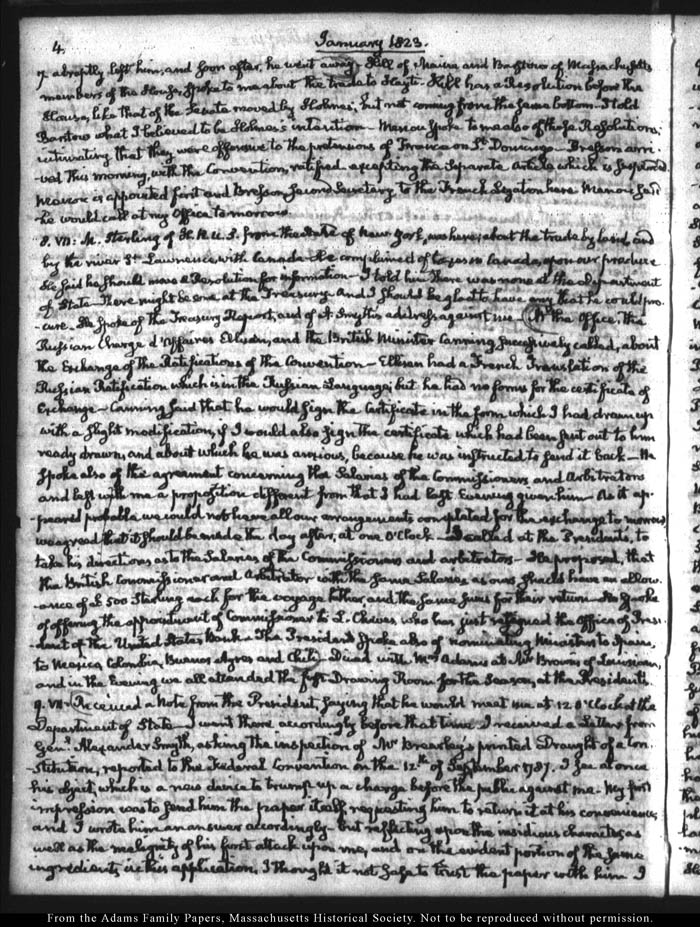 4.
January 1823.
abruptly left him, and soon after, he went away. Hill of Maine and Barstow of Massachusetts
members of the House, spoke to me about the trade to Hayti. Hill has a Resolution before the
House, like that of the Senate moved by Holmes, but not coming from the same bottom. I told
Barstow what I believed to be Holmes's intention. Menou spoke to me also of these Resolutions;
intimating that they were offensive to the pretensions of France on St. Domingo. Bresson arri-
-ved this morning, with the Convention, ratified excepting the Separate Article which is
Menou is appointed first and Bresson second Secretary to the French Legation here. Menou said
he would call at my Office tomorrow.
8. VII: M. Sterling of H.R.U.S. from the State of New York, was here; about the trade by land, and
by the river St. Lawrence with Canada. He complained of in Canada, upon our produce
He said he should move a Resolution for information. I told him there was none at the Department
of State. There might be some at the Treasury. And I should be glad to have any that he could pro-
-cure. He spoke of the Treasury Report, and of A. Smyth's address against me. At the Office, the
Russian Chargé d'Affaires Ellisen, and the British Minister Canning successively called, about
the Exchange of the Ratifications of the Convention. Ellisen had a French Translation of the
Russian Ratification which is in the Russian Language; but he had no forms for the certificate of
Exchange. Canning said that he would sign the Certificate in the form which I had drawn up
with a slight modification, if I would also sign the certificate which had been sent out to him
ready drawn, and about which he was anxious, because he was instructed to send it back. He
spoke also of the agreement concerning the Salaries of the Commissioners and Arbitrators
and left with me a proposition different from that I had last Evening given him. As it ap-
peared probable we could not have all our arrangements completed for the exchange to morrow
we agreed that it should be made the day after, at one O'Clock. I called at the Presidents, to
take his directions as to the Salaries of the Commissioners and arbitrators. He proposed, that
the British Commissioner and Arbitrator with the same Salaries as ours should have an allow-
-ance of £500 Sterling each for the voyage hither and the same sum for their return. He spoke
of offering the appointment of Commissioner to L. Cheves who has just resigned the Office of Presi-
dent of the United States Bank. The President spoke also of nominating Ministers to Spain,
to Mexico, Colombia, Buenos Ayres and Chili. Dined with Mrs Adams at Mr Brown's of Louisiana,
and in the Evening we all attended the first Drawing Room for the Season, at the Presidents.
9. VII. Received a Note from the President, saying that he would meet me at 12 O'Clock at the
Department of State. I went there accordingly before that time. I received a Letter from
Genl. Alexander Smyth, asking the inspection of Mr Brearley's printed Draught of a Con-
stitution, reported to the Federal Convention on the 12th of September 1787. I saw at once
his object, which is a new device to trump up a charge before the public against me. My first
impression was to send him the paper itself, requesting him to return it at his convenience,
and I wrote him an answer accordingly. But reflecting upon the insidious character, as
well as the malignity of his first attack upon me, and on the evident portion of the same
ingredients in his application, I thought it not safe to trust the paper with him I
From the Adams Family Papers, Massachusetts Historical Society. Not to be reproduced without permission.